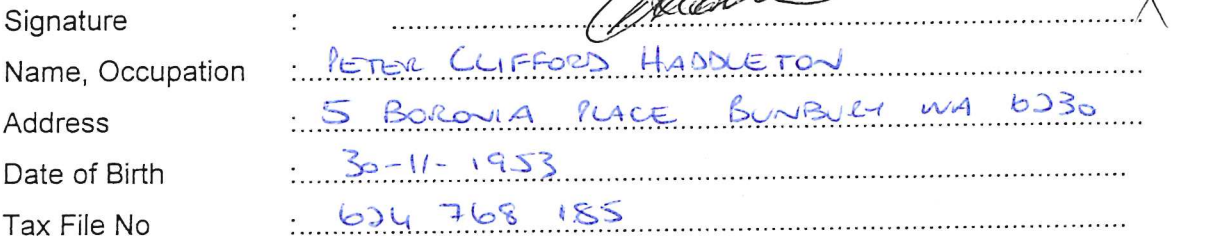 Signature :
Name, Occupation : PETER CLIFFORD HADDLETON
Address : 5 BORONIA PLACE BUNBURY WA 6230
Date of Birth : 30-11-1953
Tax File No : 624 768 185